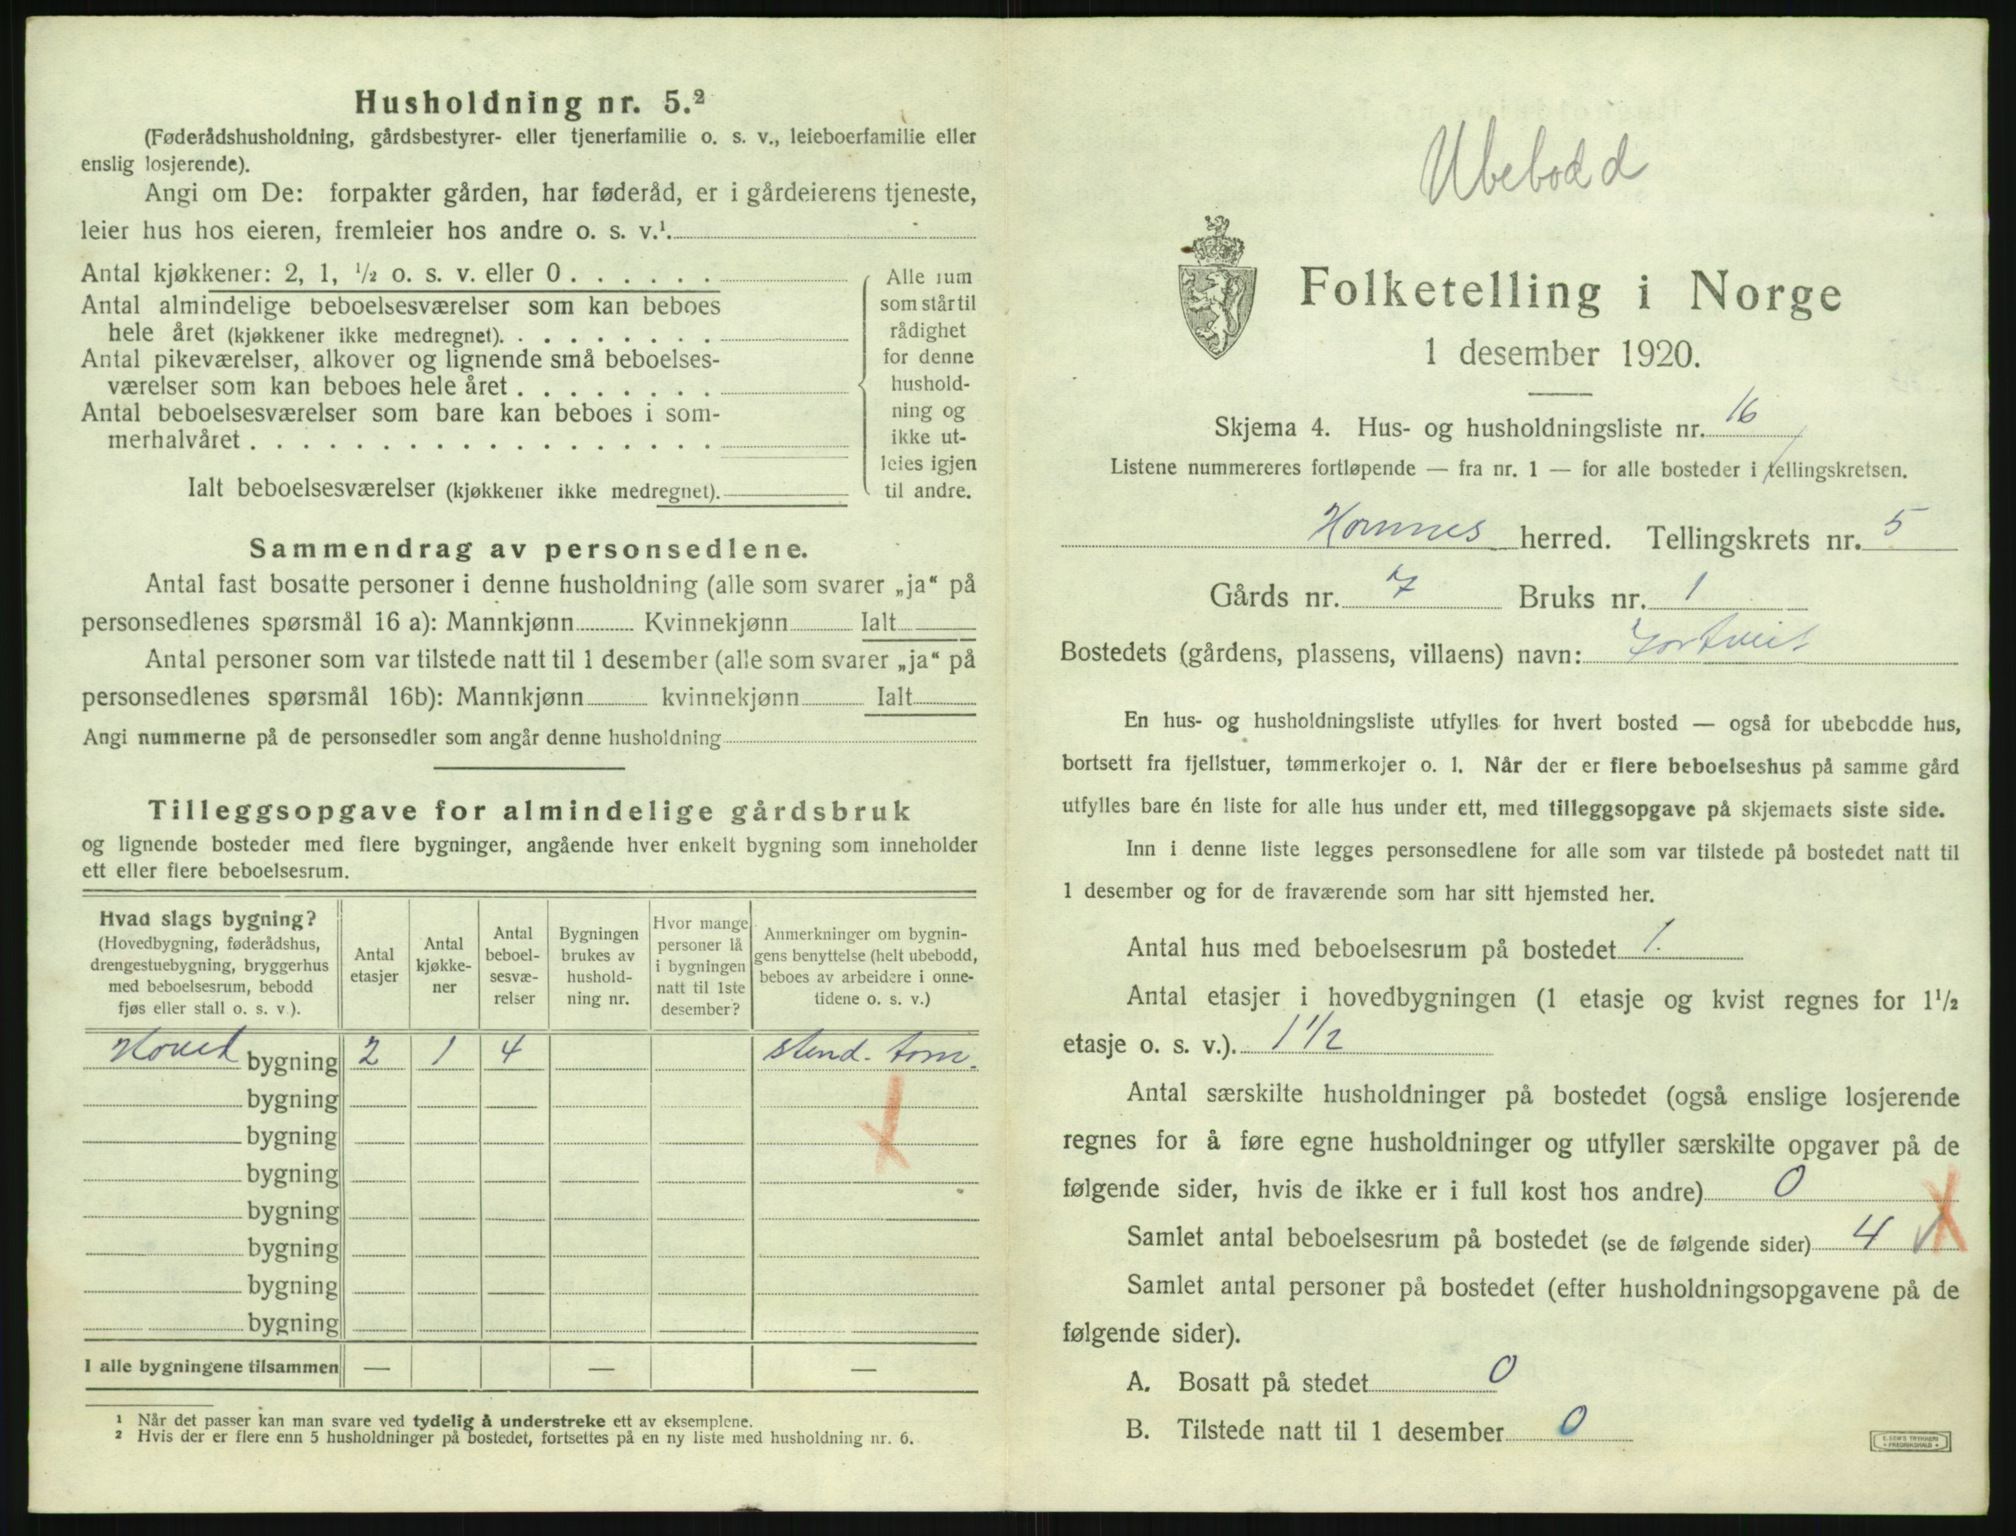 Husholdning nr. 5.²
(Føderådshusholdning, gårdsbestyrer- eller tjenerfamilie o. s. v., leieboerfamilie eller
enslig losjerende).
Angi om De: forpakter gården, har føderåd, er i gårdeierens tjeneste,
leier hus hos eieren, fremleier hos andre o. s. v.¹.
Antal kjøkkener: 2, 1, ½ o. s. v. eller 0 . . . . . .
Antal almindelige beboelsesværelser som kan beboes
hele året (kjøkkener ikke medregnet). . . . . . . . .
Antal pikeværelser, alkover og lignende små beboelses-
værelser som kan beboes hele året . . . . . . . .
Antal beboelsesværelser som bare kan beboes i som-
merhalvåret . . . . . . . . . . . . . . . . . .
Ialt beboelsesværelser (kjøkkener ikke medregnet).
Alle rum
som står til
rådighet
for denne
hushold-
ning og
ikke ut-
leies igjen
til andre.
Sammendrag av personsedlene.
Antal fast bosatte personer i denne husholdning (alle som svarer „ja“ på
personsedlenes spørsmål 16 a): Mannkjønn Kvinnekjønn Ialt
Antal personer som var tilstede natt til 1 desember (alle som svarer „ja“ på
personsedlenes spørsmål 16b): Mannkjønn kvinnekjønn Ialt
Angi nummerne på de personsedler som angår denne husholdning
Tilleggsopgave for almindelige gårdsbruk
og lignende bosteder med flere bygninger, angående hver enkelt bygning som inneholder
ett eller flere beboelsesrum.
Hvad slags bygning?
(Hovedbygning, føderådshus,
drengestuebygning, bryggerhus
med beboelsesrum, bebodd
fjøs eller stall o. s. v.).
Antal
etasjer
Antal
kjøkke-
ner
Antal
beboel-
sesvæ-
relser
Bygningen
brukes av
hushold-
ning nr.
Hvor mange
personer lå
i bygningen
natt til 1ste
desember?
Anmerkninger om bygnin-
gens benyttelse (helt ubebodd,
beboes av arbeidere i onne-
tidene o. s. v.)
Hoved bygning 2 1 4 stend. tom.
bygning
bygning
bygning
bygning
bygning
bygning
bygning
I alle bygningene tilsammen — — —
¹ Når det passer kan man svare ved tydelig å understreke ett av eksemplene.
² Hvis der er flere enn 5 husholdninger på bostedet, fortsettes på en ny liste med husholdning nr. 6.
Ubebodd
Folketelling i Norge
1 desember 1920.
Skjema 4. Hus- og husholdningsliste nr. 16
Listene nummereres fortløpende — fra nr. 1 — for alle bosteder i tellingskretsen.
Hornnes herred. Tellingskrets nr. 5
Gårds nr. 7 Bruks nr. 1
Bostedets (gårdens, plassens, villaens) navn:
En hus- og husholdningsliste utfylles for hvert bosted — også for ubebodde hus,
bortsett fra fjellstuer, tømmerkojer o. l. Når der er flere beboelseshus på samme gård
utfylles bare én liste for alle hus under ett, med tilleggsopgave på skjemaets siste side.
Inn i denne liste legges personsedlene for alle som var tilstede på bostedet natt til
1 desember og for de fraværende som har sitt hjemsted her.
Antal hus med beboelsesrum på bostedet 1.
Antal etasjer i hovedbygningen (1 etasje og kvist regnes for 1½
etasje o. s. v.). 1 1/2
Antal særskilte husholdninger på bostedet (også enslige losjerende
regnes for å føre egne husholdninger og utfyller særskilte opgaver på de
følgende sider, hvis de ikke er i full kost hos andre) 0
Samlet antal beboelsesrum på bostedet (se de følgende sider) 4
Samlet antal personer på bostedet (efter husholdningsopgavene på de
følgende sider).
A. Bosatt på stedet 0
B. Tilstede natt til 1 desember 0